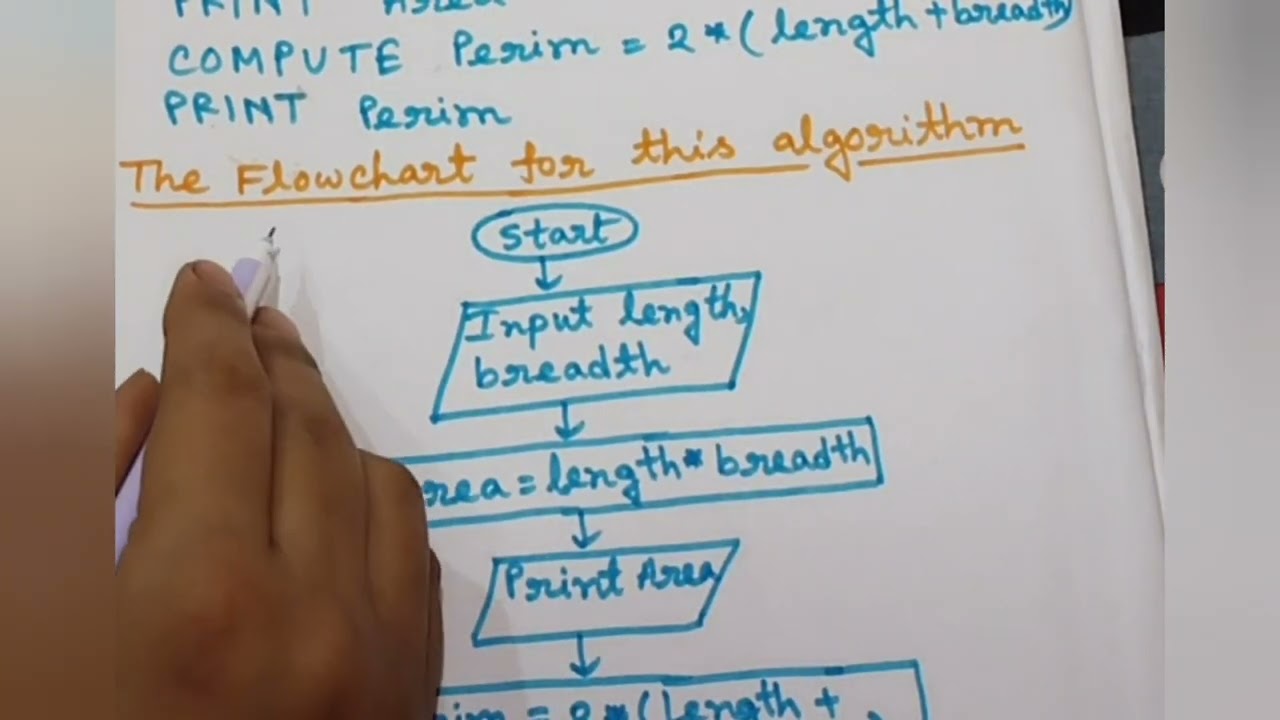 PRINT Area
COMPUTE Perim = 2*(length+breadth)
PRINT Perim
The Flowchart for this algorithm
Start
Input length,
breadth
rea = length* breadth
Print Area
im = 2*(length +